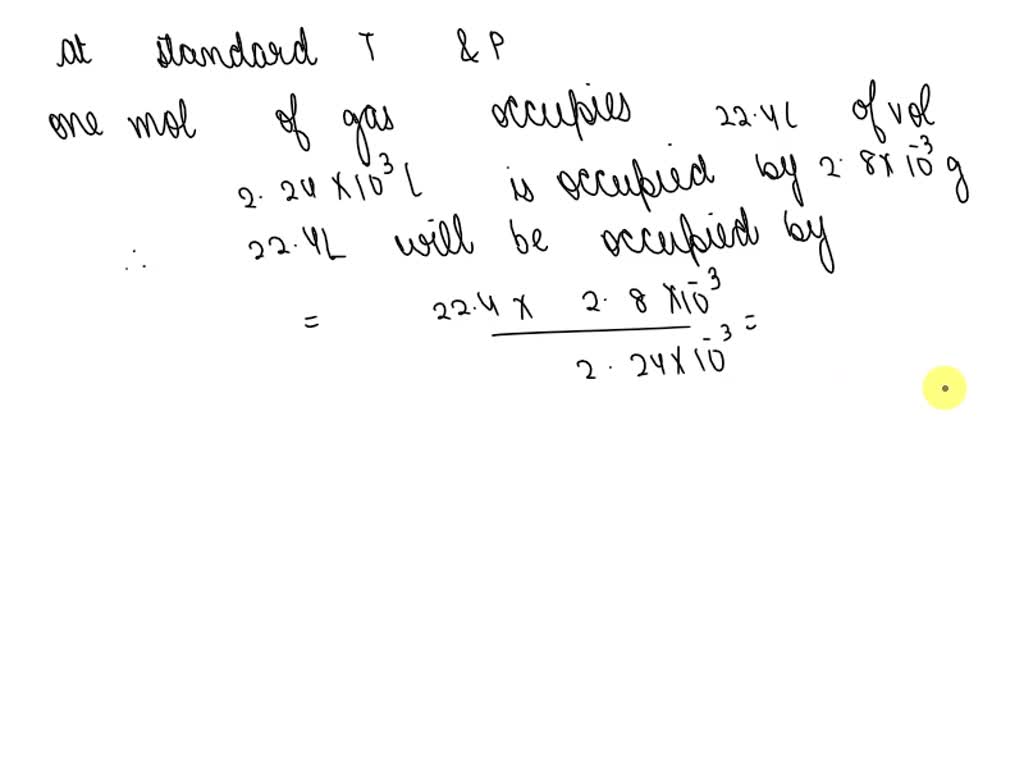 at standard T & P
one mol of gas occupies 22.4L of vol
2.24 × 10³ L is occupied by 2.8 × 10⁻³ g
∴ 22.4L will be occupied by
= 22.4 × 2.8 × 10⁻³ =
2.24 × 10⁻³